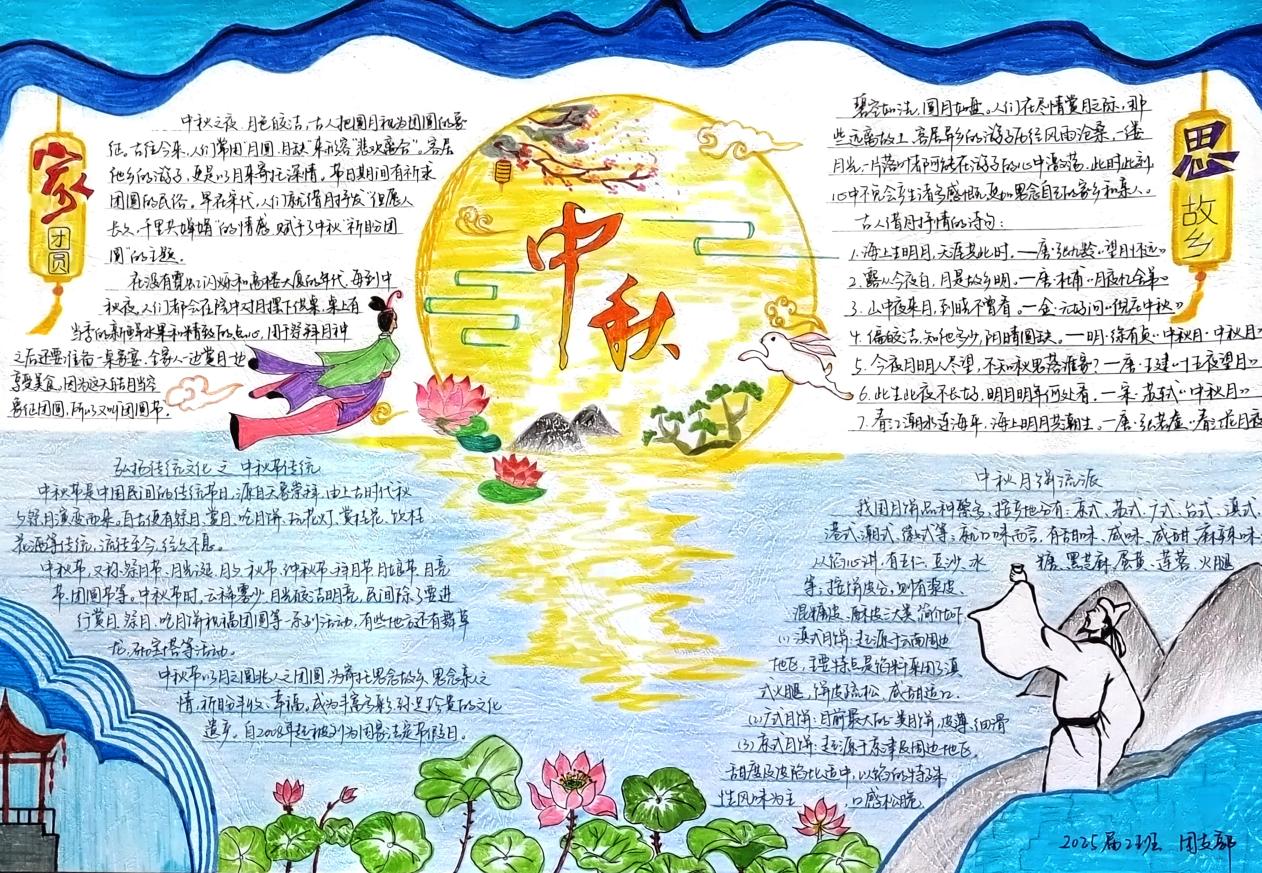 家
团
圆
中秋之夜,月色皎洁,古人把圆月视为团圆的象
征。古往今来,人们常用"月圆、月缺"来形容"悲欢离合"。客居
他乡的游子,更是以月来寄托深情。
团圆的民俗。早在年代,人们就借月抒发"但愿人
长久,千里共婵娟"的情感,赋予中秋"祈盼团
圆"的主题。
在没有霓虹闪烁和高楼大厦的年代,每到中
秋夜,人们都会在院中对月摆下供案,案上有
当季的新鲜水果和精致的点心,用于祭拜月神
之后还要准备一桌家宴,全家人一边赏月一边
享受美食。因为这天的月当空
象征团圆,所以又叫团圆节。
中
秋
思
故
乡
碧空如洗,圆月如盘。人们在尽情赏月之际,那
些远离故土、客居异乡的游子历经风雨沧桑,一缕
月光一片落叶者可能在游子的心中激荡,此时此刻
心中不免会产生诸多感慨,更加思念自己的家乡和亲人。
古人借月抒情的诗句:
1.海上生明月,天涯共此时。——唐·张九龄《望月怀远》
2.露从今夜白,月是故乡明。——唐·杜甫《月夜忆舍弟》
3.山中夜来月,到晓不曾看。——金·元好问《倪庄中秋》
4.偏皎洁,知他多少,阴晴圆缺。——明·徐有贞《中秋月·中秋月》
5.今夜月明人尽望,不知秋思落谁家?——唐·王建《十五夜望月》
6.此生此夜不长好,明月明年何处看。——宋·苏轼《中秋月》
7.春江潮水连海平,海上明月共潮生。——唐·张若虚《春江花月夜
弘扬传统文化之 中秋节传统
中秋节是中国民间的传统节日,源自天象崇拜,由上古时代秋
夕祭月演变而来。自古便有祭月、赏月、吃月饼、玩花灯、赏桂花、饮桂
花酒等传统,流传至今,经久不息。
中秋节,又称祭月节、月光诞、月夕、秋节、仲秋节、拜月节、月娘节、月亮
节、团圆节等。中秋节时,云稀雾少,月光皎洁明亮,民间除了要进
行赏月、祭月、吃月饼祝福团圆等一系列活动,有些地方还有舞草
龙,砌宝塔等活动。
中秋节以月之圆兆人之团圆,为寄托思念故乡,思念亲人之
情,祈盼丰收、幸福,成为丰富多彩、弥足珍贵的文化
遗产。自2008年起被列为国家法定节假日。
中秋月饼流派
我国月饼品种繁多,按产地分有:京式、苏式、广式、台式、滇式、
港式、潮式、徽式等;就口味而言,有甜味、咸味、咸甜、麻辣味
从馅心讲,有五仁、豆沙、冰糖、黑芝麻、蛋黄、莲蓉、火腿
等;按饼皮分,则有浆皮、
混糖皮、酥皮三大类,简介如下
(1)滇式月饼:起源于云南周边
地区,主要特点是馅料采用了滇
式火腿,饼皮疏松,咸甜适口。
(2)广式月饼:目前最大的一类月饼,皮薄、细滑
(3)京式月饼:起源于京津及周边地区。
甜度及皮馅比适中,以馅的特殊
性风味为主,口感松脆。
2025届23班 团支部